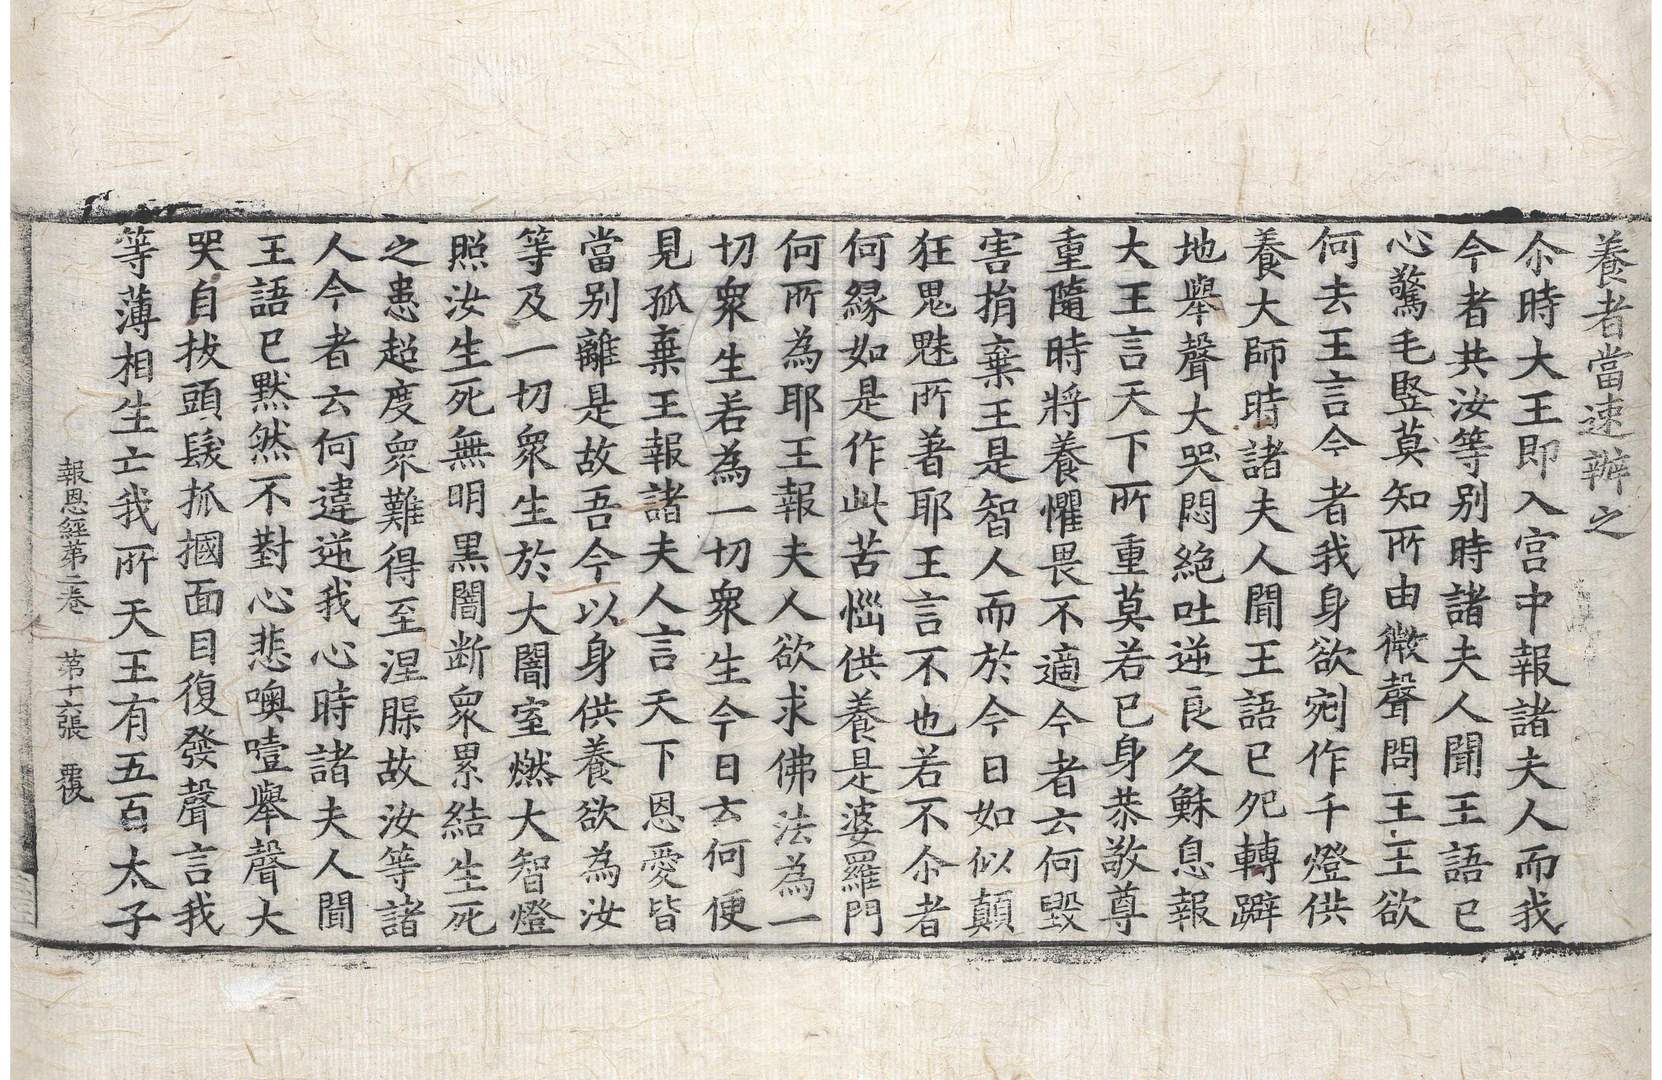 養者當速辦之
尒時大王即入宫中報諸夫人而我
今者共汝等别時諸夫人聞王語已
心驚毛竪莫知所由微聲問王王欲
何去王言今者我身欲剜作千燈供
養大師時諸夫人聞王語已宛轉躃
地舉聲大哭悶絶吐逆良久穌息報
大王言天下所重莫若已身恭敬尊
重隨時將養懼畏不適今者云何毀
害捐棄王是智人而於今日如似顛
狂鬼魅所著耶王言不也若不尒者
何緣如是作此苦惱供養是婆羅門
何所為耶王報夫人欲求佛法為一
切衆生若為一切衆生今日云何便
見孤棄王報諸夫人言天下恩愛皆
當别離是故吾今以身供養欲為汝
等及一切衆生於大闇室燃大智燈
照汝生死無明黑闇断衆累結生死
之患超度衆難得至涅槃故汝等諸
人今者云何違逆我心時諸夫人聞
王語已默然不對心悲噢噎舉聲大
哭自拔頭髮抓摑面目復發聲言我
等薄相生亡我所天王有五百太子
報恩經第二卷 第十六張 覆